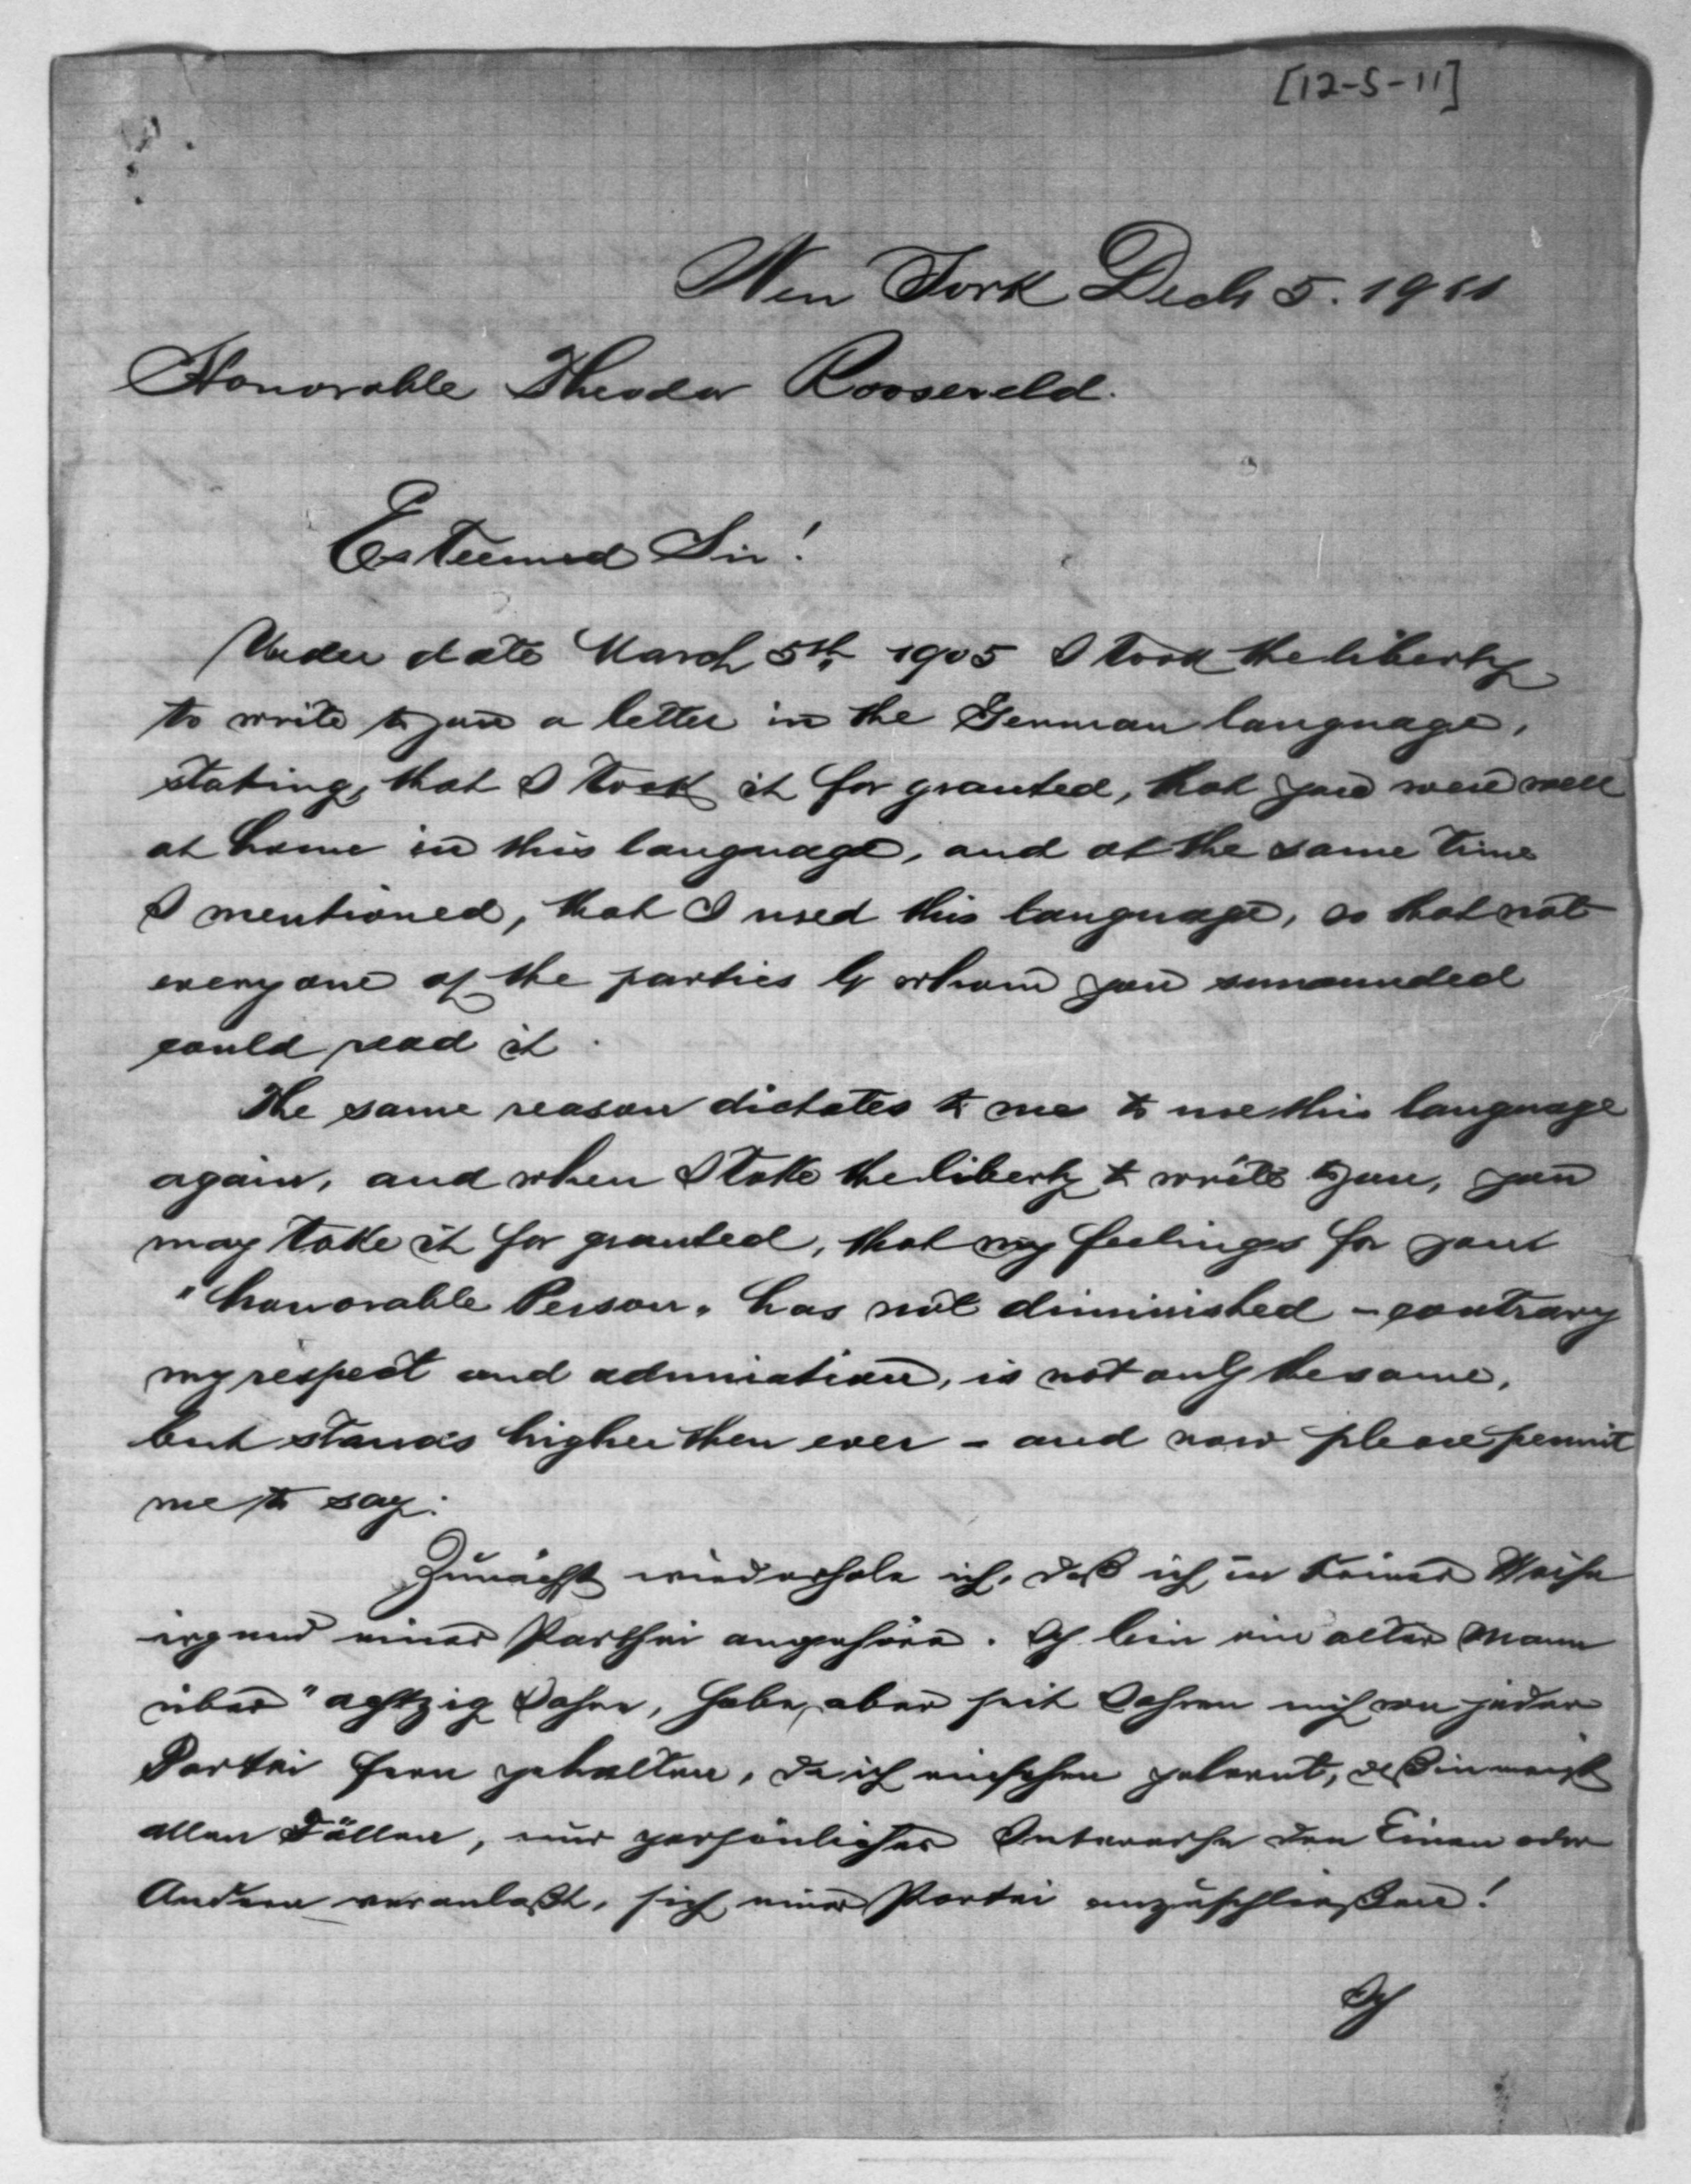 [12-5-11]
New York Dech 5. 1911
Honorable Theodor Rooseveld.
Esteemed Sir!
Under date March 5th 1905 I took the liberty
to write to you a letter in the German language,
stating, that I took it for granted, that you were well
at home in this language, and at the same time
I mentioned, that I used this language, so that not
everyone of the parties by whom you surrounded
could read it.
The same reason dictates to me to use this language
again, and when I take the liberty to write to you, you
may take it for granted, that my feelings for your
"honorable Person" has not diminished - contrary
my respect and admiration, is not only the same,
but stands higher then ever - and now please permit
me to say:
Zunächst wiederhole ich, daß ich in keiner Weise
irgend einer Parthei angehöre. Ich bin ein alter Mann
über "achtzig Jahre, habe, aber seit Jahren mich von jeder
Partei fern gehalten, da ich einsehen gelernt, daß in meist
allen Fällen, nur persönliches Interesse den Einen oder
Andern veranlaßt, sich einer Partei anzuschließen!
Ich